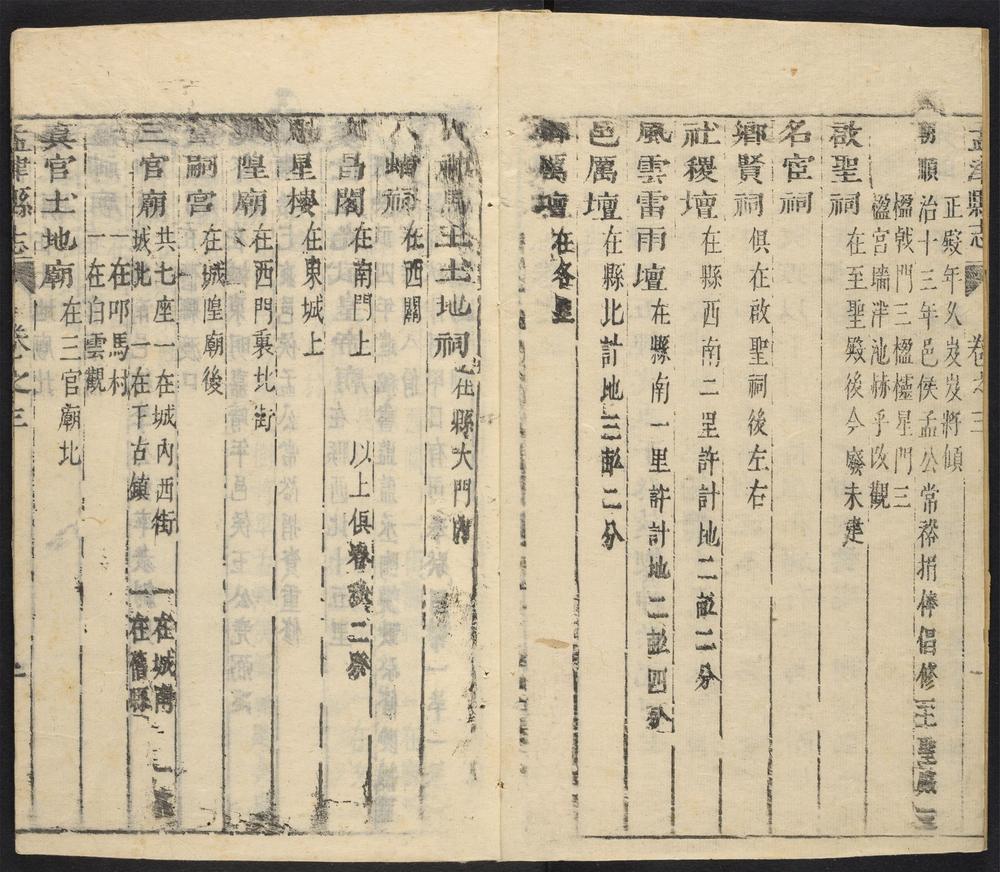 孟津縣志 卷之三
正殿年久岌岌將傾
朝順治十三年邑侯孟公常裕捐俸倡修正聖殿三
楹戟門三楹欞星門三
楹宮牆泮池赫乎改觀
啟聖祠在至聖殿後今廢未建
名宦祠
鄉賢祠俱在啟聖祠後左右
社稷壇在縣西南二里許計地二畝二分
風雲雷雨壇在縣南一里許計地二畝四分
邑厲壇在縣北計地三畝二分
鄉厲壇在各里
馬王土地祠在縣大門內
八蜡祠在西關
文昌閣在南門上 以上俱春秋二祭
魁星樓在東城上
城隍廟在西門裏北街
嗣宮在城隍廟後
三官廟共七座一在城內西街 一在城南
城北一在于古鎮一在舊縣
一在叩馬村
一在伯雲觀
真官土地廟在三官廟北
孟津縣志 卷之三